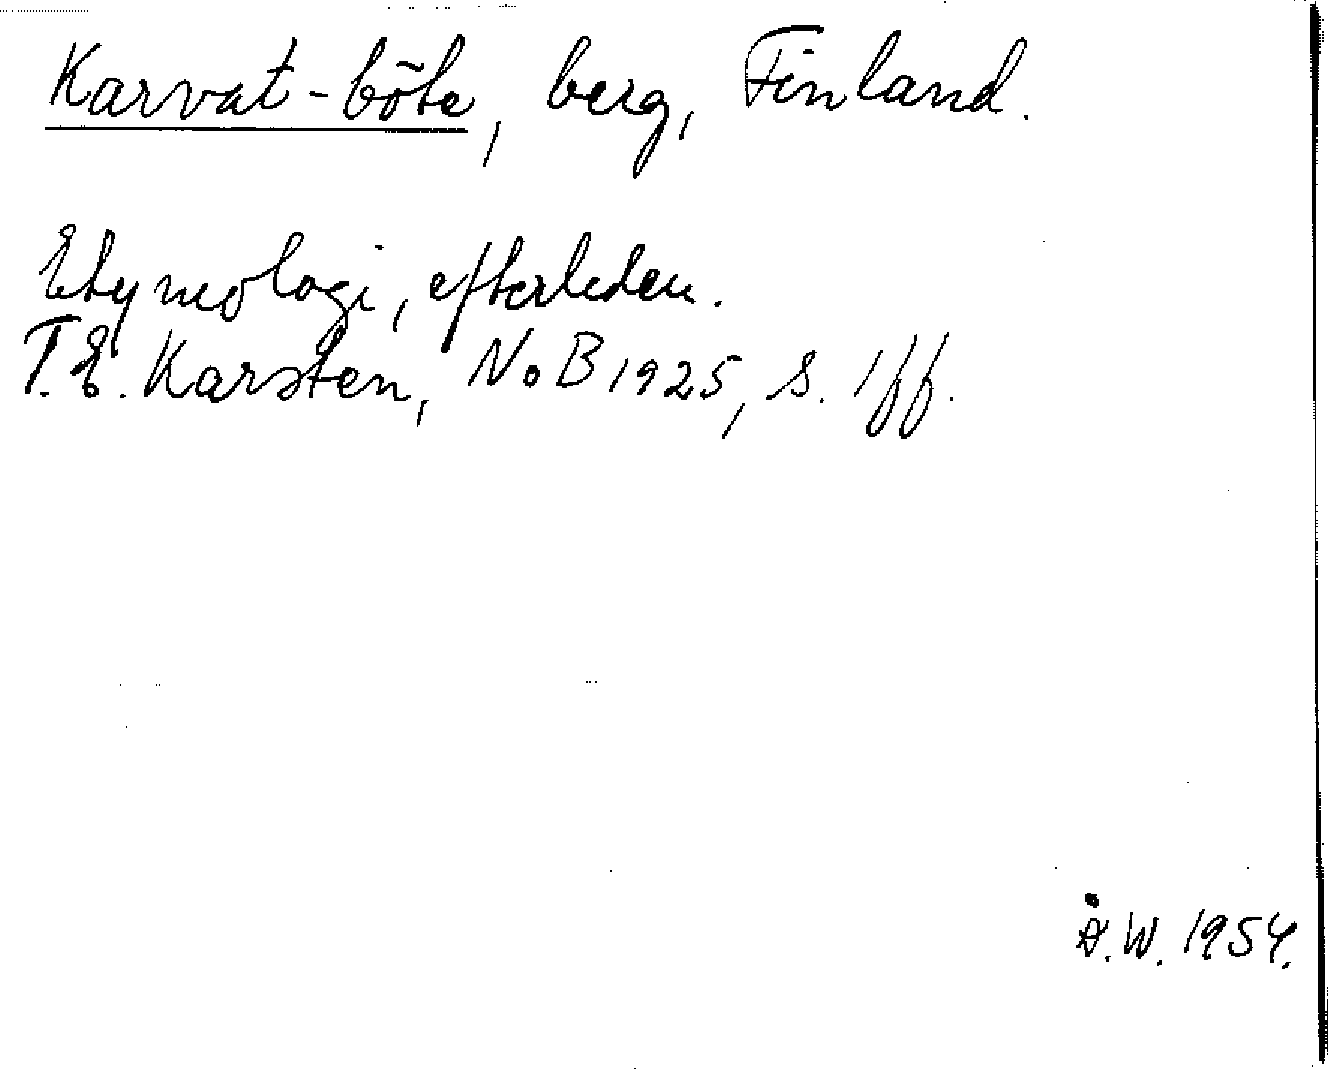 Karvat-böte, berg, Finland.
Etymologi, efterleden.
T.E. Karsten, NoB 1925, s. 1ff.
Å.W. 1954.